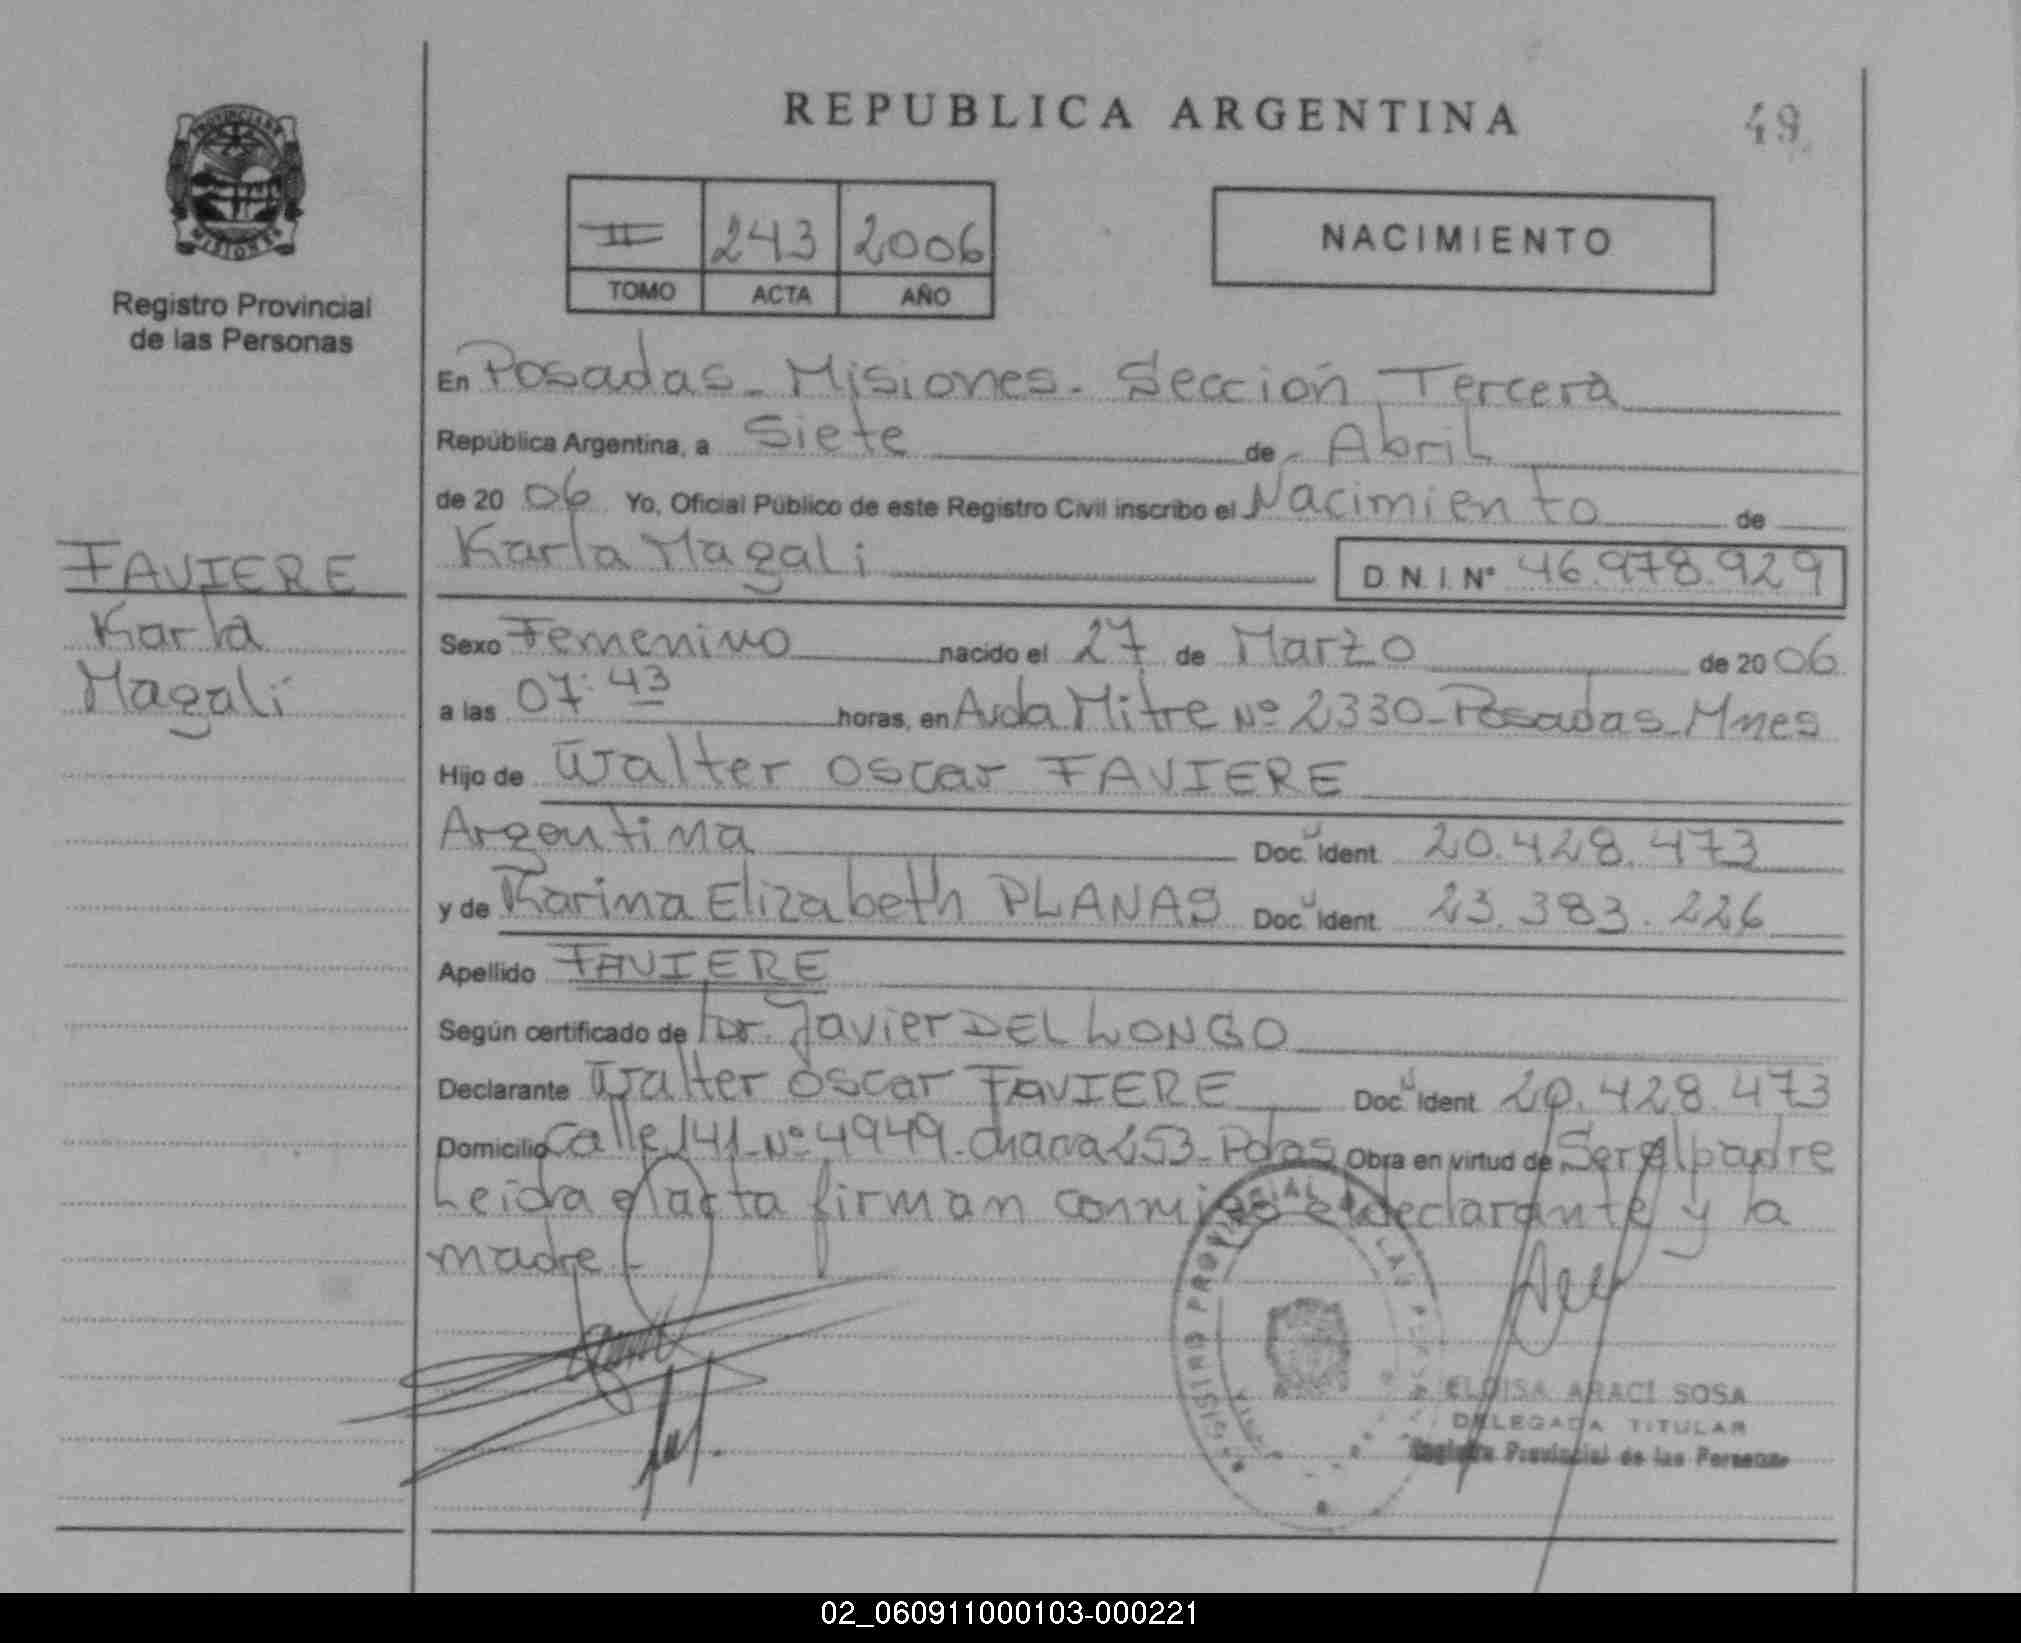 REPUBLICA ARGENTINA
49
PROVINCIA DE
MISIONES
Registro Provincial
de las Personas
II 243 2006
TOMO ACTA AÑO
NACIMIENTO
En Posadas - Misiones - Sección Tercera
República Argentina, a Siete de Abril
de 20 06 Yo, Oficial Público de este Registro Civil inscribo el Nacimiento de
Karla Magali D.N.I. Nº 46.978.929
FAVIERE
Karla
Magali
Sexo Femenino nacido el 27 de Marzo de 20 06
a las 07:43 horas, en Avda Mitre Nº 2330 - Posadas - Mnes
Hijo de Walter Oscar FAVIERE
Argentina Doc. Ident. 20.428.473
y de Karina Elizabeth PLANAS Doc. Ident. 23.383.226
Apellido FAVIERE
Según certificado de Dr. Javier DEL LONGO
Declarante Walter Oscar FAVIERE Doc. Ident. 20.428.473
Domicilio Calle 141 - Nº 4949 - Chacra 253 - Pdas Obra en virtud de Ser el padre
Leida el acta firman conmigo el declarante y la
madre -
ELOISA ARACI SOSA
DELEGADA TITULAR
Registro Provincial de las Personas
02_060911000103-000221